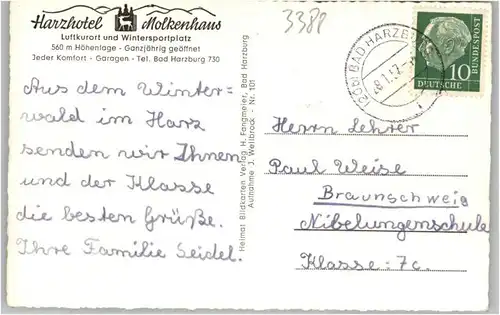 Harzhotel Molkenhaus
Luftkurort und Wintersportplatz
560 m Höhenlage - Ganzjährig geöffnet
Jeder Komfort - Garagen - Tel. Bad Harzburg 730
3388
(20b) BAD HARZB
28.1.
10
DEUTSCHE
BUNDESPOST
Aus dem Winter=
wald im Harz
senden wir Ihnen
und der Klasse
die besten Grüße.
Ihre Familie Seidel.
Heimat Bildkarten Verlag H. Fangmeier, Bad Harzburg
Aufnahme J. Wellbrock - Nr. 101
Herrn Lehrer
Paul Weise
Braunschweig
Nibelungenschule
Klasse 7c.